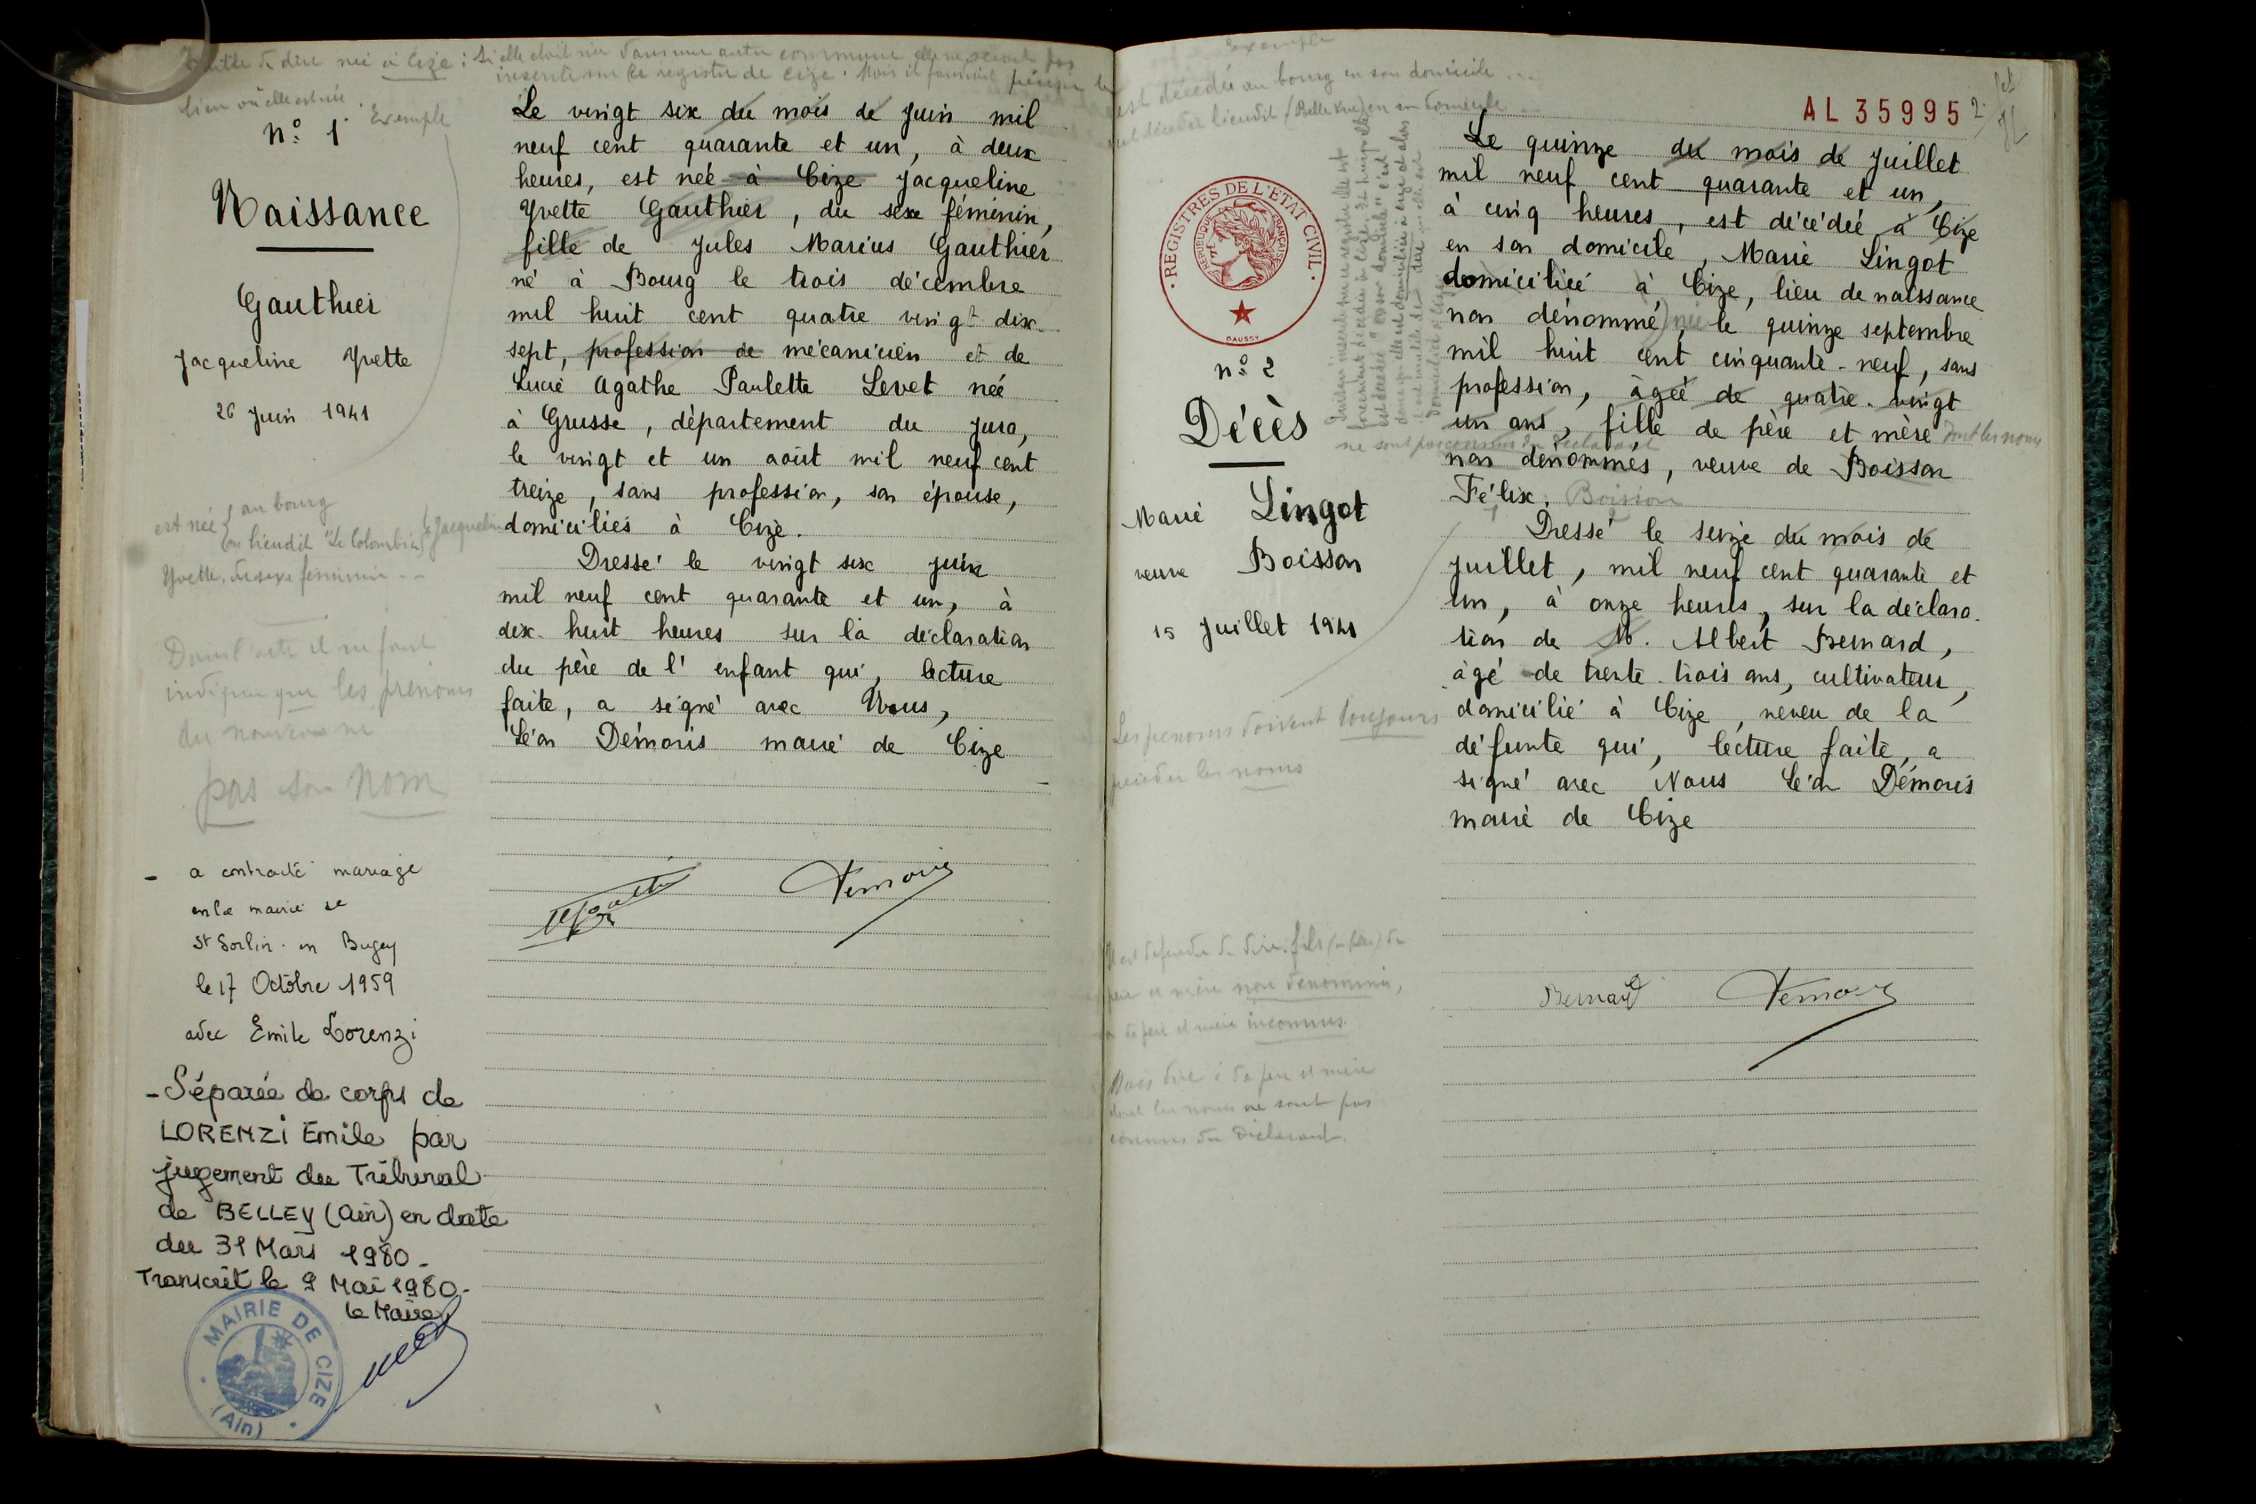 Inutile de dire née à Cize : Si elle était née dans une autre commune elle ne serait pas
inscrite sur le registre de Cize. Mais il faudrait préciser le
lieu où elle est née. Exemple
n° 1
Naissance
Gauthier
Jacqueline Yvette
26 Juin 1941
est née (au bourg
(au lieudit "Le Colombier") Jacqueline
Yvette, du sexe féminin ...
Dans l'acte il ne faut
indiquer que les prénoms
du nouveau né
pas son nom
- a contracté mariage
en la mairie de
St Sorlin-en Bugey
le 17 Octobre 1959
avec Emile Lorenzi
- Séparée de corps de
LORENZI Emile par
jugement du Tribunal
de BELLEY (Ain) en date
du 31 Mars 1980-
Transcrit le 9 Mai 1980-
le Maire,
MAIRIE DE CIZE
(Ain)
Le vingt six du mois de Juin mil
neuf cent quarante et un, à deux
heures, est née à Cize Jacqueline
Yvette Gauthier, du sexe féminin,
fille de Jules Marius Gauthier
né à Bourg le trois décembre
mil huit cent quatre vingt dix-
sept, profession de mécanicien et de
Lucie Agathe Paulette Levet née
à Grusse, département du Jura,
le vingt et un août mil neuf cent
treize, sans profession, son épouse,
domiciliés à Cize.
Dressé le vingt six juin
mil neuf cent quarante et un, à
dix-huit heures sur la déclaration
du père de l'enfant qui, lecture
faite, a signé avec Nous,
Léon Démoris maire de Cize
Demoris
Exemple
est décédée au bourg en son domicile ...
est décédée lieudit (Belle Vue) en son domicile ...
AL 35995
2
REGISTRES DE L'ETAT CIVIL
REPUBLIQUE FRANÇAISE
DAUSSY
n° 2
Décès
Marie Lingot
veuve Boisson
15 Juillet 1941
Les prénoms doivent toujours
précéder les noms
Il est défendu de dire: fils (ou fille) de
père et mère non dénommés,
ou de père et mère inconnus.
Mais dire : de père et mère
dont les noms ne sont pas
connus du déclarant.
Le quinze du mois de Juillet
mil neuf cent quarante et un,
à cinq heures, est décédée à Cize
en son domicile, Marie Lingot
domiciliée à Cize, lieu de naissance
non dénommé, née le quinze septembre
mil huit cent cinquante-neuf, sans
profession, âgée de quatre-vingt
un ans, fille de père et mère dont les noms
ne sont pas connus du déclarant
non dénommés, veuve de Boisson
Félix. Boisson
Dressé le seize du mois de
Juillet, mil neuf cent quarante et
un, à onze heures, sur la déclara-
tion de M. Albert Bernard,
âgé de trente-trois ans, cultivateur,
domicilié à Cize, neveu de la
défunte qui, lecture faite, a
signé avec Nous Léon Démoris
maire de Cize
Bernard
Demoris